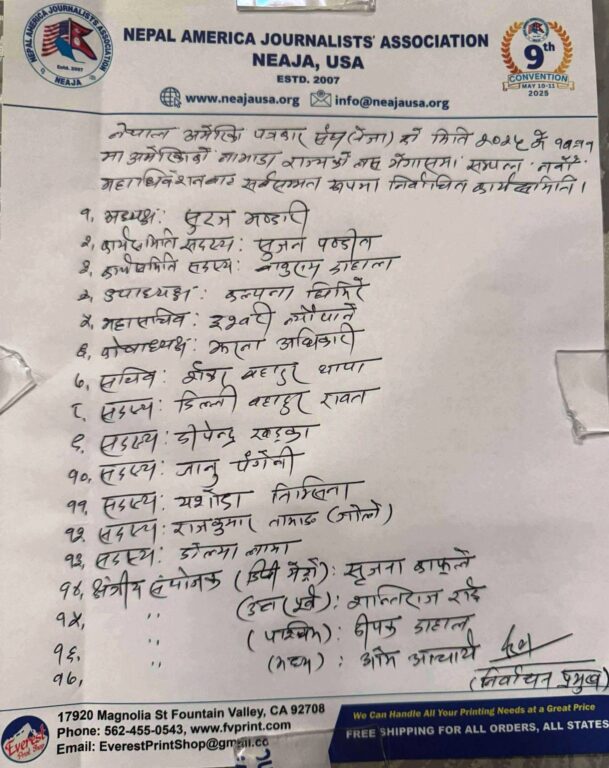 NEPAL AMERICA JOURNALISTS ASSOCIATION
Estd. 2007
NEAJA
NEPAL AMERICA JOURNALISTS' ASSOCIATION
NEAJA, USA
ESTD. 2007
www.neajausa.org info@neajausa.org
9th
CONVENTION
MAY 10-11
2025
नेपाल अमेरिका पत्रकार संघ (नेजा) को मिति २०२५ मे
मा अमेरिकाको नाभाडा राज्यको लास भेगासमा सम्पन्न नवौं
महाधिवेशनबाट सर्वसम्मत रूपमा निर्वाचित कार्यसमिति।
१, अध्यक्ष: सुरज भण्डारी
२, कार्यसमिति सदस्य: सुजन पण्डीत
३, कार्यसमिति सदस्य: बाबुराम दाहाल
४, उपाध्यक्ष: कल्पना घिमिरे
५, महासचिव: ईश्वरी न्यौपाने
६, कोषाध्यक्ष: झरना अधिकारी
७, सचिव: बहादुर थापा
८, सदस्य: डिल्ली बहादुर रावत
९, सदस्य: दीपेन्द्र खड्का
१०, सदस्य: जानु पंगेनी
११, सदस्य: यशोदा तिम्सिना
१२, सदस्य: राजकुमार तामाङ (जोले)
१३, सदस्य: डोल्मा लामा
१४, क्षेत्रीय संयोजक (डिसी मेट्रो): सृजना काफ्ले
१५, " (उत्तर पूर्व): शान्तिराज राई
१६, " (पश्चिम): दीपक दाहाल
१७, " (मध्य): ओम आचार्य
(निर्वाचन प्रमुख)
Everest
Print Shop
17920 Magnolia St Fountain Valley, CA 92708
Phone: 562-455-0543, www.fvprint.com
Email: EverestPrintShop@gmail.co
We Can Handle All Your Printing Needs at a Great Price
FREE SHIPPING FOR ALL ORDERS, ALL STATES